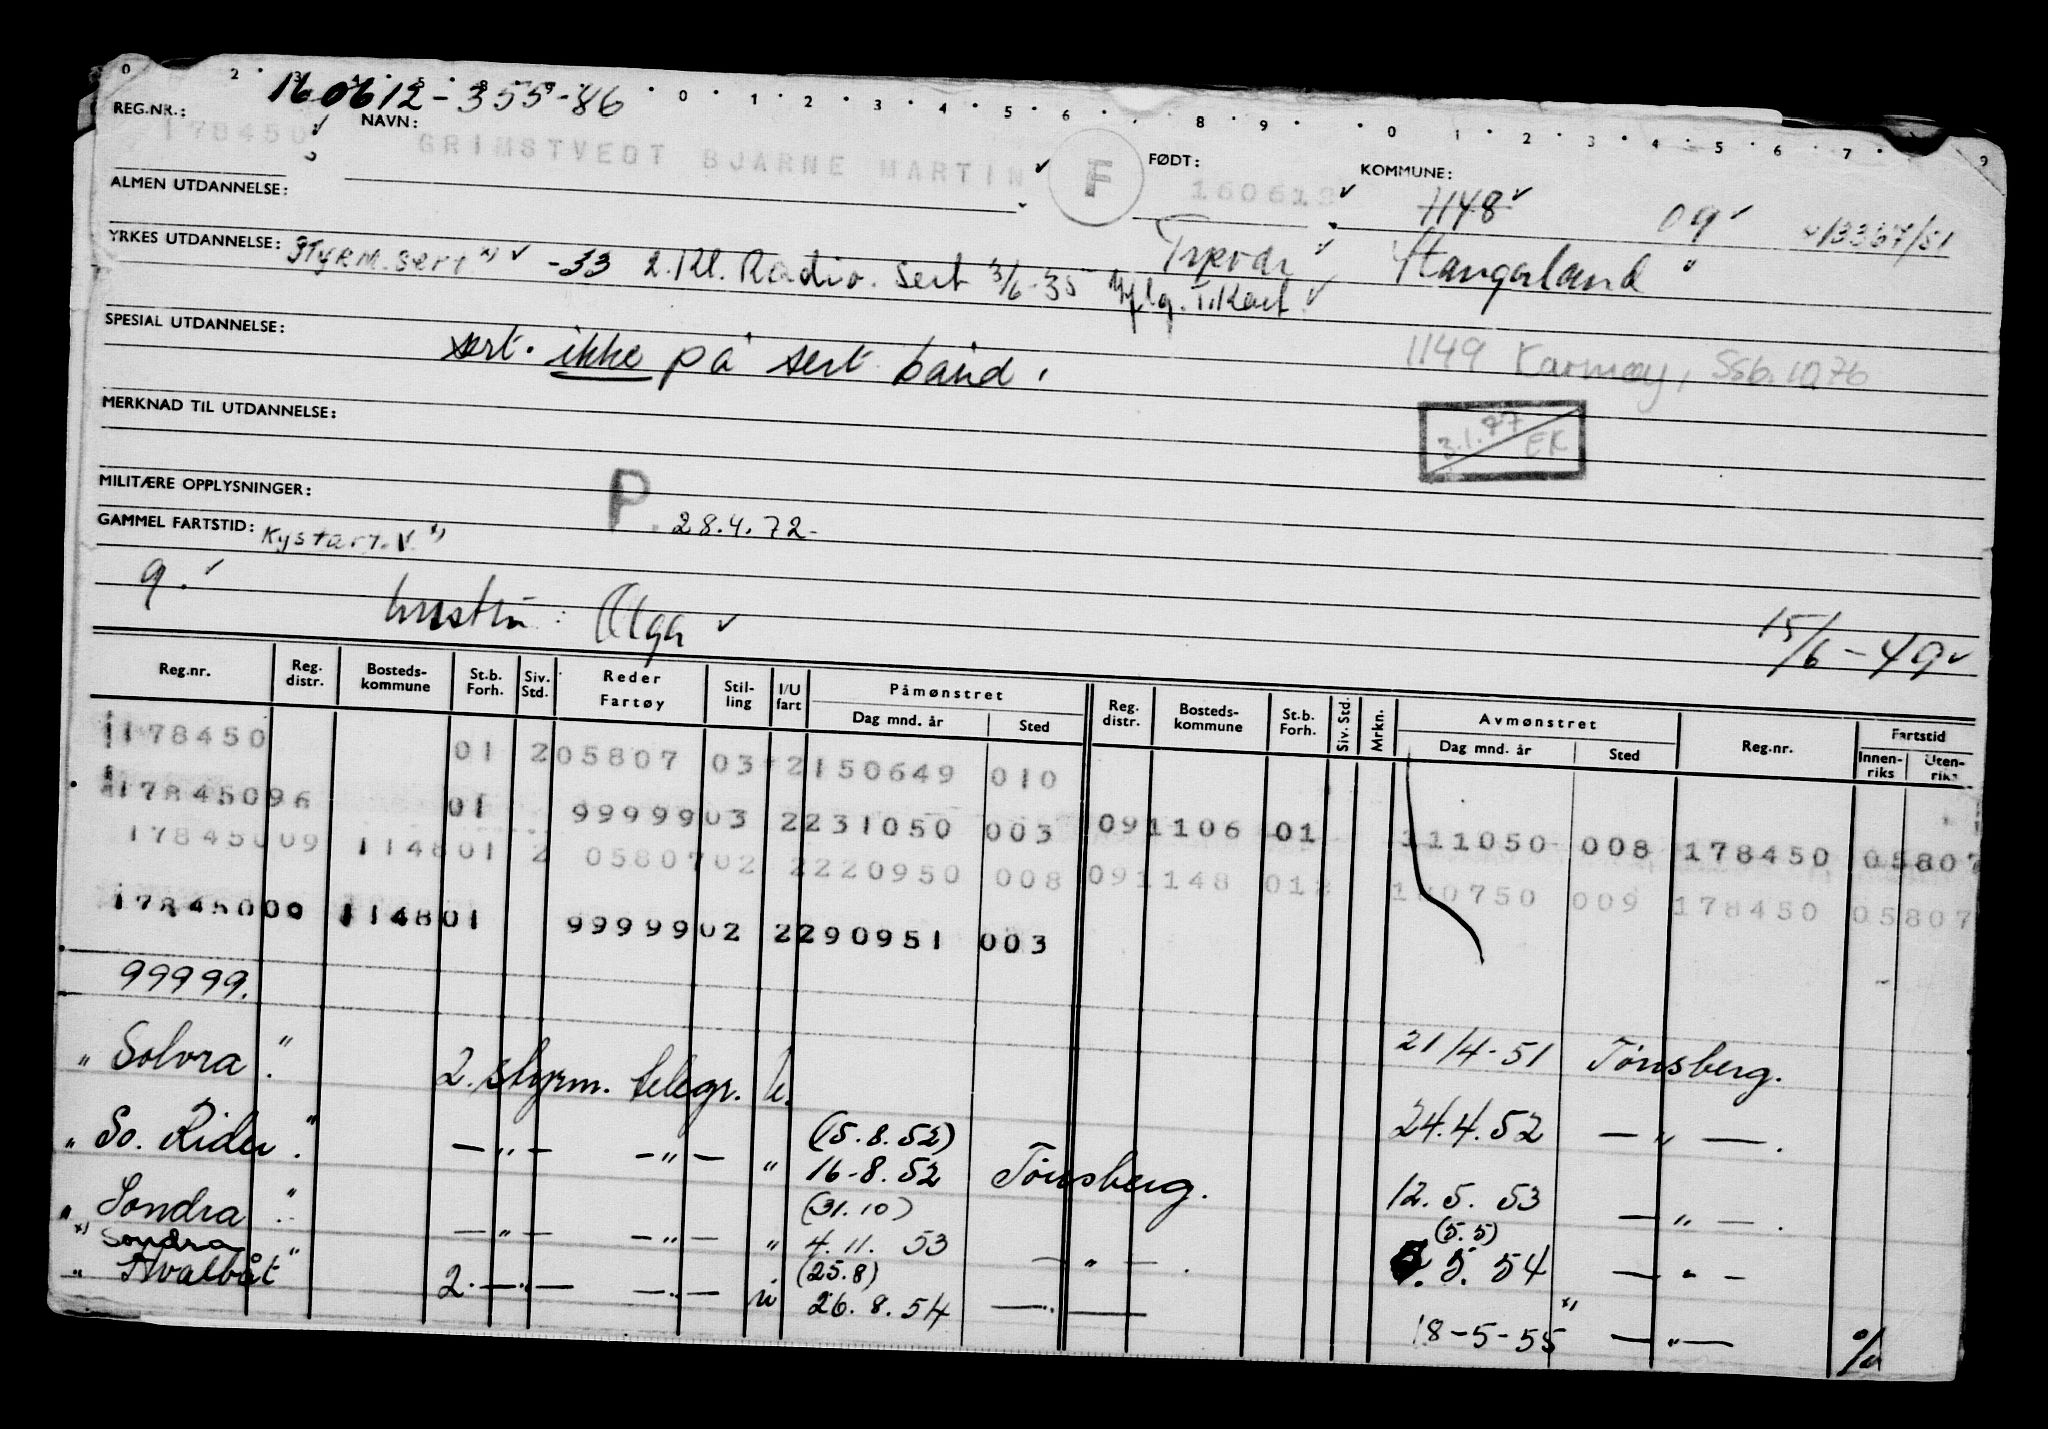 0 2 3 5 8 9 0 1 2 3 4 5 6 8 9 0 1 2 3 4 5 6 7 9
160612-355-86
REG.NR.: NAVN: FØDT: KOMMUNE:
178450 GRIMSTVEDT BJARNE MARTIN F 160612 1148 09 13337/51
ALMEN UTDANNELSE:
YRKES UTDANNELSE: Styrm. sert x) -33 2. Kl. Radio. sert 3/6-35 iflg. T.Kort Tysvær Stangaland
SPESIAL UTDANNELSE:
sert. ikke på sert bånd. 1149 Karmøy, Ssb. 1976
MERKNAD TIL UTDANNELSE: 3.1.77 EK
MILITÆRE OPPLYSNINGER: P. 28.4.72-
GAMMEL FARTSTID: Kystart. V. x)
9. hustru: Olga 15/6-49
Reg.nr. Reg. distr. Bosteds-kommune St.b. Forh. Siv. Std. Reder Fartøy Stil-ling I/U fart Påmønstret Dag mnd. år Sted Reg. distr. Bosteds-kommune St.b. Forh. Siv. Std. Mrkn. Avmønstret Dag mnd. år Sted Reg.nr. Fartstid Innen-riks Uten-riks
178450 01 205807 03 2150649 010
17845096 01 9999903 2231050 003 091106 01 111050 008 178450 05807
17845009 114801 2 0580702 2220950 008 091148 01 0750 009 178450 05807
17845009 114801 9999902 2290951 003
99999.
" Solvra ". 2. styrm. telegr. u. 21/4-51 Tønsberg.
" So. Rider ". — " — — " — " (15.8.52) 24.4.52 — " —.
16-8.52 Tønsberg.
" Sondra ". — " — — " — " (31.10) 12.5.53 — " —.
4.11.53 — " —. (5.5)
x) Sondra 5.5.54 — " —
" Hvalbåt " 2. — " — — " — u (25.8)
26.8.54 — " — x) 18-5-55 — " —